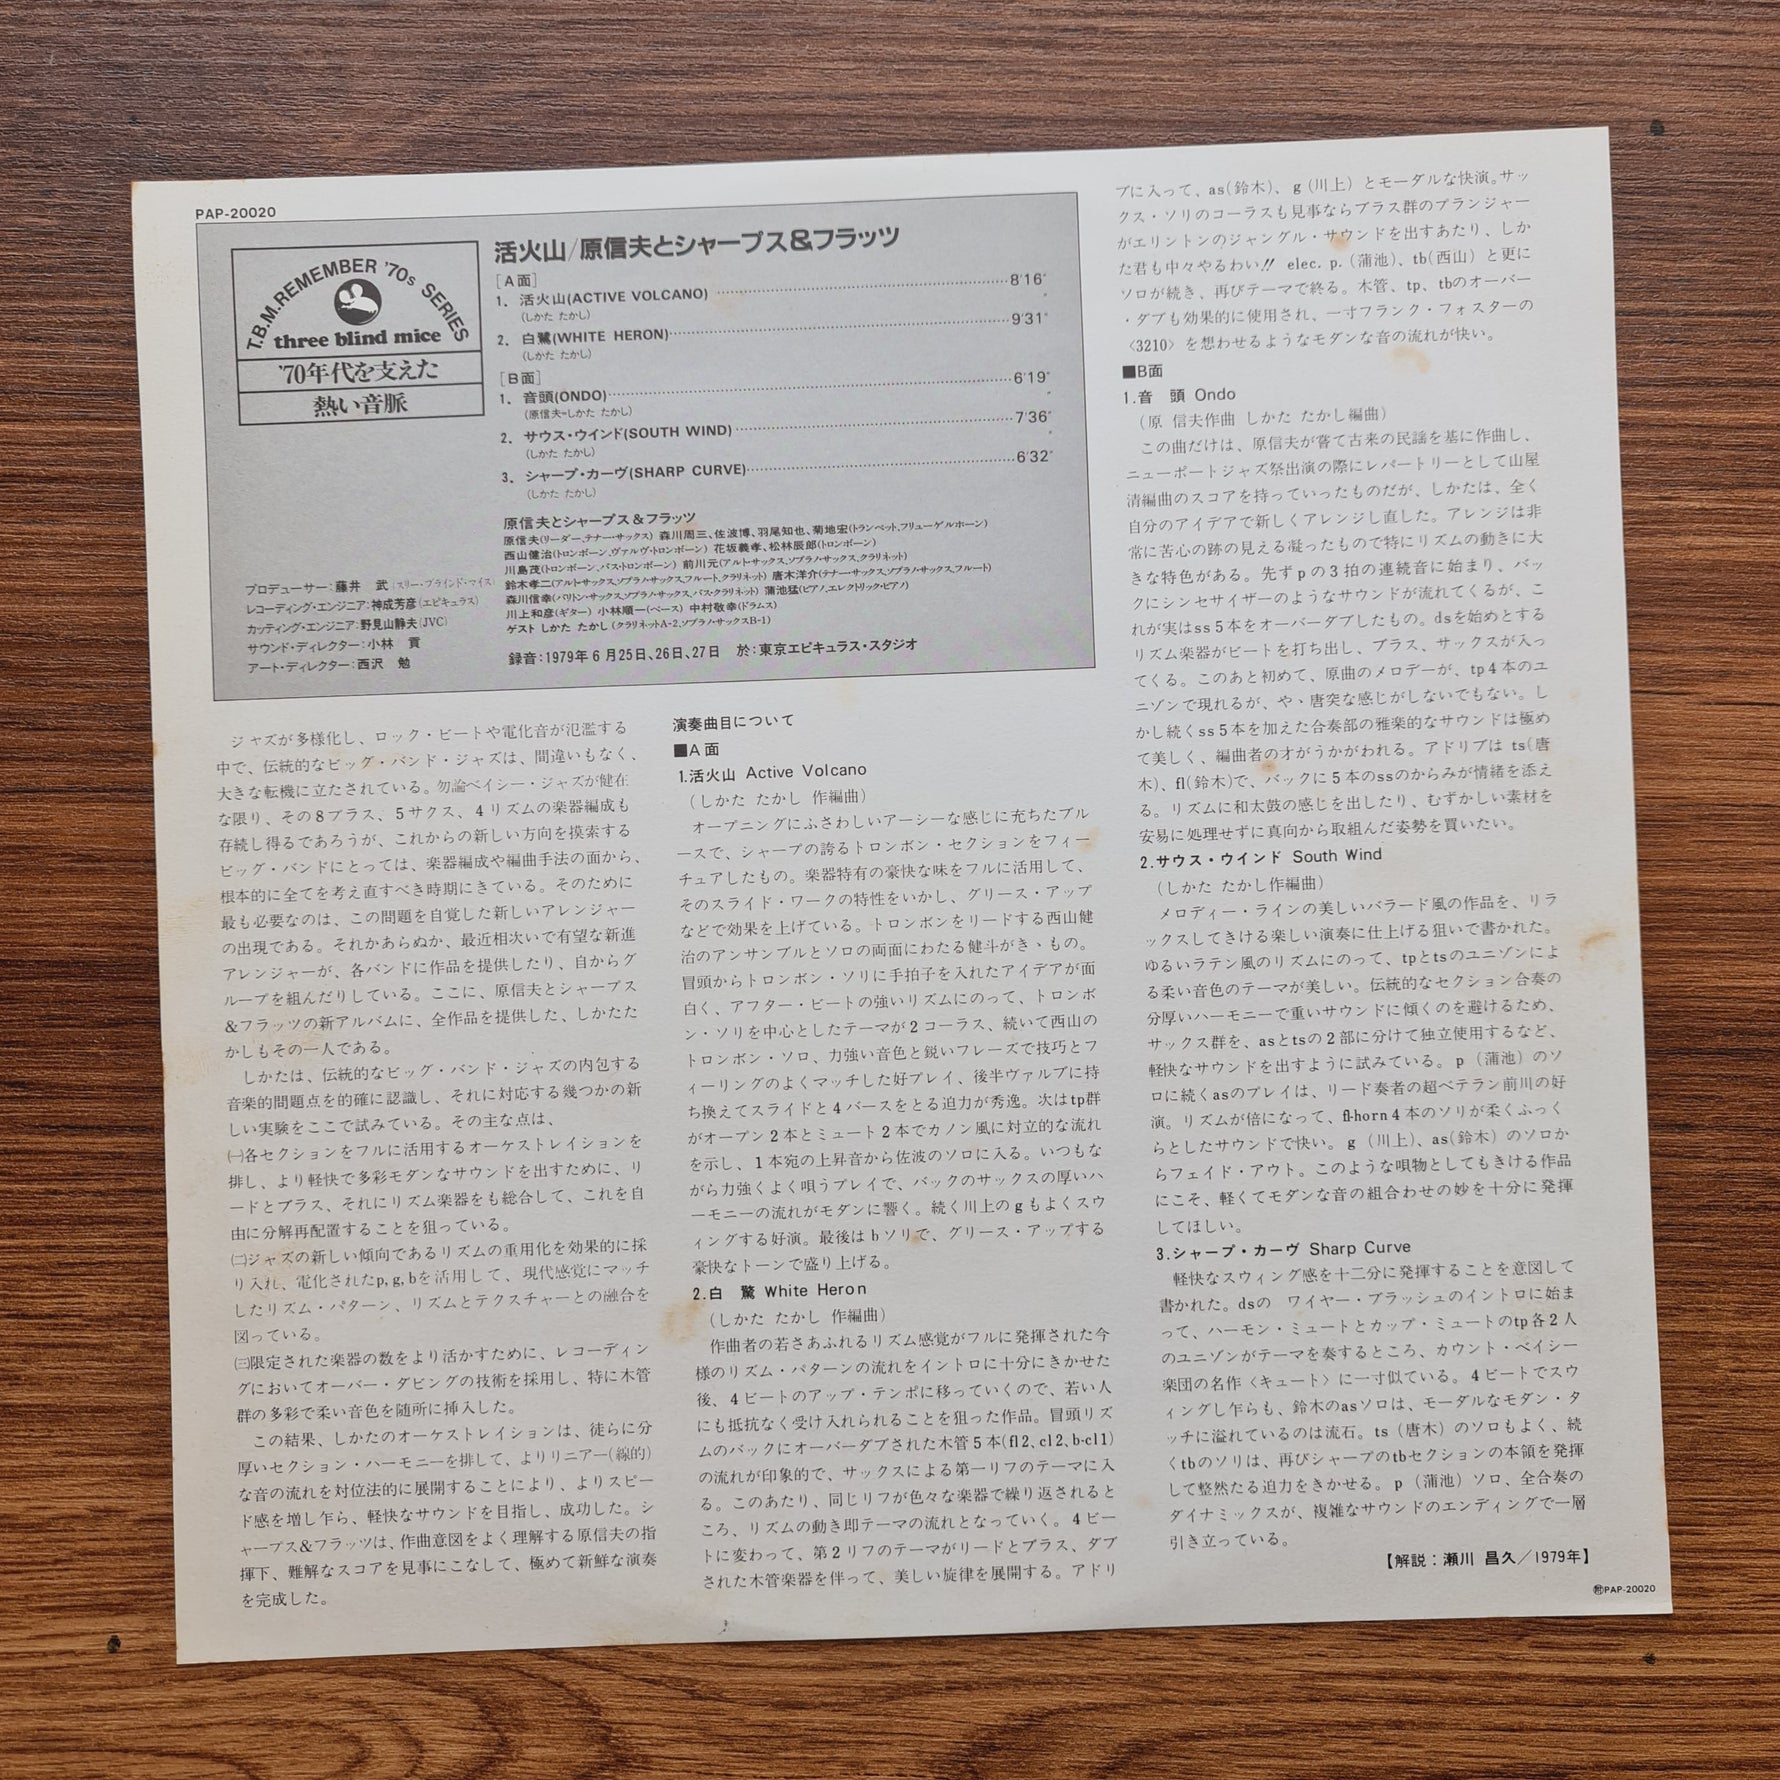 PAP-20020
T.B.M. REMEMBER '70s SERIES
three blind mice
'70年代を支えた
熱い音脈
活火山/原信夫とシャープス&フラッツ
[A面]
1. 活火山(ACTIVE VOLCANO) 8'16"
(しかた たかし)
2. 白鷺(WHITE HERON) 9'31"
(しかた たかし)
[B面]
1. 音頭(ONDO) 6'19"
(原信夫=しかた たかし)
2. サウス・ウインド(SOUTH WIND) 7'36"
(しかた たかし)
3. シャープ・カーヴ(SHARP CURVE) 6'32"
(しかた たかし)
原信夫とシャープス&フラッツ
原信夫(リーダー、テナー・サックス) 森川周三、佐波博、羽尾知也、菊地宏(トランペット、フリューゲルホーン)
西山健治(トロンボーン、ヴァルヴ・トロンボーン) 花坂義孝、松林辰郎(トロンボーン)
川島茂(トロンボーン、バス・トロンボーン) 前川元(アルト・サックス、ソプラノ・サックス、クラリネット)
鈴木孝二(アルト・サックス、ソプラノ・サックス、フルート、クラリネット) 唐木洋介(テナー・サックス、ソプラノ・サックス、フルート)
森川信幸(バリトン・サックス、ソプラノ・サックス、バス・クラリネット) 蒲池猛(ピアノ、エレクトリック・ピアノ)
川上和彦(ギター) 小林順一(ベース) 中村敬幸(ドラムス)
ゲスト しかた たかし(クラリネットA-2、ソプラノ・サックスB-1)
録音:1979年6月25日、26日、27日 於:東京エピキュラス・スタジオ
プロデューサー:藤井 武(スリー・ブラインド・マイス)
レコーディング・エンジニア:神成芳彦(エピキュラス)
カッティング・エンジニア:野見山静夫(JVC)
サウンド・ディレクター:小林 貢
アート・ディレクター:西沢 勉
ジャズが多様化し、ロック・ビートや電化音が氾濫する
中で、伝統的なビッグ・バンド・ジャズは、間違いもなく、
大きな転機に立たされている。勿論ベイシー・ジャズが健在
な限り、その8ブラス、5サクス、4リズムの楽器編成も
存続し得るであろうが、これからの新しい方向を摸索する
ビッグ・バンドにとっては、楽器編成や編曲手法の面から、
根本的に全てを考え直すべき時期にきている。そのために
最も必要なのは、この問題を自覚した新しいアレンジャー
の出現である。それかあらぬか、最近相次いで有望な新進
アレンジャーが、各バンドに作品を提供したり、自からグ
ループを組んだりしている。ここに、原信夫とシャープス
&フラッツの新アルバムに、全作品を提供した、しかたた
かしもその一人である。
しかたは、伝統的なビッグ・バンド・ジャズの内包する
音楽的問題点を的確に認識し、それに対応する幾つかの新
しい実験をここで試みている。その主な点は、
㈠各セクションをフルに活用するオーケストレイションを
排し、より軽快で多彩モダンなサウンドを出すために、リ
ードとブラス、それにリズム楽器をも総合して、これを自
由に分解再配置することを狙っている。
㈡ジャズの新しい傾向であるリズムの重用化を効果的に採
り入れ、電化されたp, g, bを活用して、現代感覚にマッチ
したリズム・パターン、リズムとテクスチャーとの融合を
図っている。
㈢限定された楽器の数をより活かすために、レコーディン
グにおいてオーバー・ダビングの技術を採用し、特に木管
群の多彩で柔い音色を随所に挿入した。
この結果、しかたのオーケストレイションは、徒らに分
厚いセクション・ハーモニーを排して、よりリニアー(線的)
な音の流れを対位法的に展開することにより、よりスピー
ド感を増し乍ら、軽快なサウンドを目指し、成功した。シ
ャープス&フラッツは、作曲意図をよく理解する原信夫の指
揮下、難解なスコアを見事にこなして、極めて新鮮な演奏
を完成した。
演奏曲目について
■A面
1.活火山 Active Volcano
(しかた たかし 作編曲)
オープニングにふさわしいアーシーな感じに充ちたブル
ースで、シャープの誇るトロンボン・セクションをフィー
チュアしたもの。楽器特有の豪快な味をフルに活用して、
そのスライド・ワークの特性をいかし、グリース・アップ
などで効果を上げている。トロンボンをリードする西山健
治のアンサンブルとソロの両面にわたる健斗がきゝもの。
冒頭からトロンボン・ソリに手拍子を入れたアイデアが面
白く、アフター・ビートの強いリズムにのって、トロンボ
ン・ソリを中心としたテーマが2コーラス、続いて西山の
トロンボン・ソロ、力強い音色と鋭いフレーズで技巧とフ
ィーリングのよくマッチした好プレイ、後半ヴァルブに持
ち換えてスライドと4バースをとる迫力が秀逸。次はtp群
がオープン2本とミュート2本でカノン風に対立的な流れ
を示し、1本宛の上昇音から佐波のソロに入る。いつもな
がら力強くよく唄うプレイで、バックのサックスの厚いハ
ーモニーの流れがモダンに響く。続く川上のgもよくスウ
ィングする好演。最後はbソリで、グリース・アップする
豪快なトーンで盛り上げる。
2.白 鷺 White Heron
(しかた たかし 作編曲)
作曲者の若さあふれるリズム感覚がフルに発揮された今
様のリズム・パターンの流れをイントロに十分にきかせた
後、4ビートのアップ・テンポに移っていくので、若い人
にも抵抗なく受け入れられることを狙った作品。冒頭リズ
ムのバックにオーバーダブされた木管5本(fl2, cl2, b-cl1)
の流れが印象的で、サックスによる第一リフのテーマに入
る。このあたり、同じリフが色々な楽器で繰り返されると
ころ、リズムの動き即テーマの流れとなっていく。4ビー
トに変わって、第2リフのテーマがリードとブラス、ダブ
された木管楽器を伴って、美しい旋律を展開する。アドリ
ブに入って、as(鈴木)、g(川上)とモーダルな快演。サッ
クス・ソリのコーラスも見事ならブラス群のプランジャー
がエリントンのジャングル・サウンドを出すあたり、しか
た君も中々やるわい!! elec. p.(蒲池)、tb(西山)と更に
ソロが続き、再びテーマで終る。木管、tp、tbのオーバー
・ダブも効果的に使用され、一寸フランク・フォスターの
〈3210〉を想わせるようなモダンな音の流れが快い。
■B面
1.音 頭 Ondo
(原 信夫作曲 しかた たかし編曲)
この曲だけは、原信夫が嘗て古来の民謡を基に作曲し、
ニューポートジャズ祭出演の際にレパートリーとして山屋
清編曲のスコアを持っていったものだが、しかたは、全く
自分のアイデアで新しくアレンジし直した。アレンジは非
常に苦心の跡の見える凝ったもので特にリズムの動きに大
きな特色がある。先ずpの3拍の連続音に始まり、バッ
クにシンセサイザーのようなサウンドが流れてくるが、こ
れが実はss5本をオーバーダブしたもの。dsを始めとする
リズム楽器がビートを打ち出し、ブラス、サックスが入っ
てくる。このあと初めて、原曲のメロデーが、tp4本のユ
ニゾンで現れるが、やゝ唐突な感じがしないでもない。し
かし続くss5本を加えた合奏部の雅楽的なサウンドは極め
て美しく、編曲者の才がうかがわれる。アドリブは ts(唐
木)、fl(鈴木)で、バックに5本のssのからみが情緒を添え
る。リズムに和太鼓の感じを出したり、むずかしい素材を
安易に処理せずに真向から取組んだ姿勢を買いたい。
2.サウス・ウインド South Wind
(しかた たかし作編曲)
メロディー・ラインの美しいバラード風の作品を、リラ
ックスしてきける楽しい演奏に仕上げる狙いで書かれた。
ゆるいラテン風のリズムにのって、tpとtsのユニゾンによ
る柔い音色のテーマが美しい。伝統的なセクション合奏の
分厚いハーモニーで重いサウンドに傾くのを避けるため、
サックス群を、asとtsの2部に分けて独立使用するなど、
軽快なサウンドを出すように試みている。p(蒲池)のソ
ロに続くasのプレイは、リード奏者の超ベテラン前川の好
演。リズムが倍になって、fl-horn4本のソリが柔くふっく
らとしたサウンドで快い。g(川上)、as(鈴木)のソロか
らフェイド・アウト。このような唄物としてもきける作品
にこそ、軽くてモダンな音の組合わせの妙を十分に発揮
してほしい。
3.シャープ・カーヴ Sharp Curve
軽快なスウィング感を十二分に発揮することを意図して
書かれた。dsの ワイヤー・ブラッシュのイントロに始ま
って、ハーモン・ミュートとカップ・ミュートのtp各2人
のユニゾンがテーマを奏するところ、カウント・ベイシー
楽団の名作〈キュート〉に一寸似ている。4ビートでスウ
ィングし乍らも、鈴木のasソロは、モーダルなモダン・タ
ッチに溢れているのは流石。ts(唐木)のソロもよく、続
くtbのソリは、再びシャープのtbセクションの本領を発揮
して整然たる迫力をきかせる。p(蒲池)ソロ、全合奏の
ダイナミックスが、複雑なサウンドのエンディングで一層
引き立っている。
【解説:瀬川 昌久／1979年】
PAP-20020